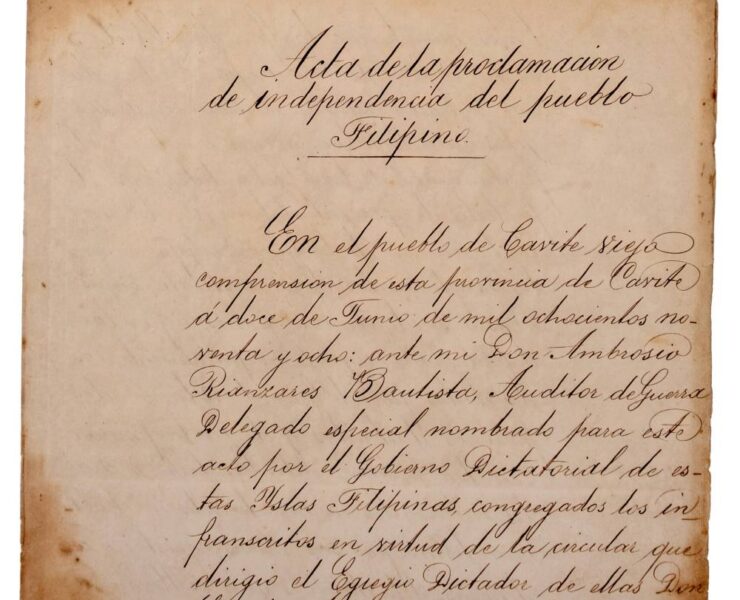 Acta de la proclamación
de independencia del pueblo
Filipino.
En el pueblo de Cavite viejo
comprension de esta provincia de Cavite
á doce de Junio de mil ochocientos no-
venta y ocho: ante mi Don Ambrosio
Rianzares Bautista, Auditor de Guerra
Delegado especial nombrado para este
acto por el Gobierno Dictatorial de es-
tas Yslas Filipinas, congregados los in-
franscritos en virtud de la circular que
dirigio el Egregio Dictador de ellas Don